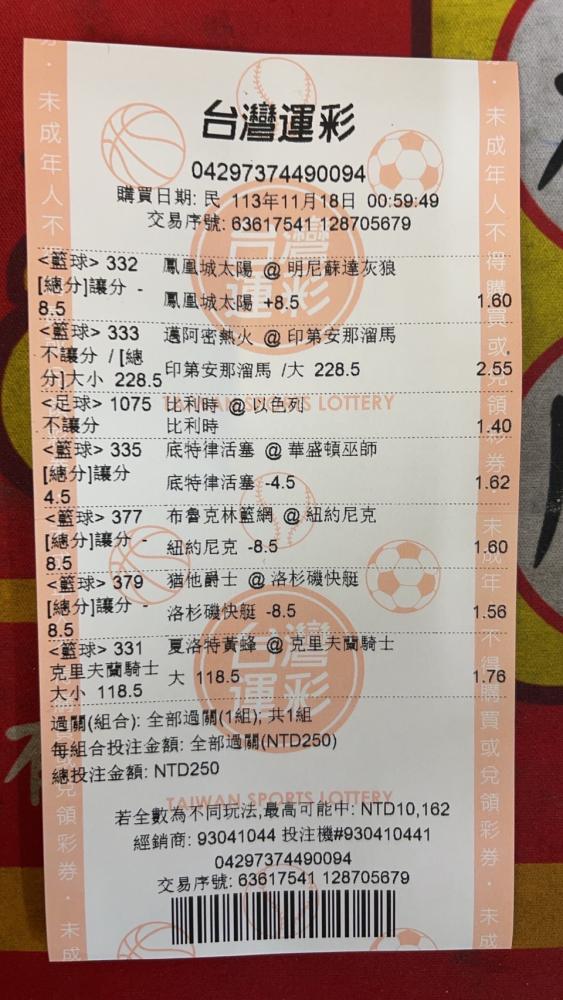 台灣運彩
04297374490094
購買日期: 民 113年11月18日 00:59:49
交易序號: 63617541 128705679
<籃球> 332 鳳凰城太陽 @ 明尼蘇達灰狼
[總分]讓分 -8.5 鳳凰城太陽 +8.5 1.60
<籃球> 333 邁阿密熱火 @ 印第安那溜馬
不讓分 / [總分]大小 228.5 印第安那溜馬 /大 228.5 2.55
<足球> 1075 比利時 @ 以色列
不讓分 比利時 1.40
<籃球> 335 底特律活塞 @ 華盛頓巫師
[總分]讓分 4.5 底特律活塞 -4.5 1.62
<籃球> 377 布魯克林籃網 @ 紐約尼克
[總分]讓分 -8.5 紐約尼克 -8.5 1.60
<籃球> 379 猶他爵士 @ 洛杉磯快艇
[總分]讓分 -8.5 洛杉磯快艇 -8.5 1.56
<籃球> 331 夏洛特黃蜂 @ 克里夫蘭騎士
克里夫蘭騎士 大小 118.5 大 118.5 1.76
過關(組合): 全部過關(1組); 共1組
每組合投注金額: 全部過關(NTD250)
總投注金額: NTD250
TAIWAN SPORTS LOTTERY
若全數為不同玩法,最高可能中: NTD10,162
經銷商: 93041044 投注機#930410441
04297374490094
交易序號: 63617541 128705679
未成年人不得購買或兌領彩券
未成年人不得購買或兌領彩券